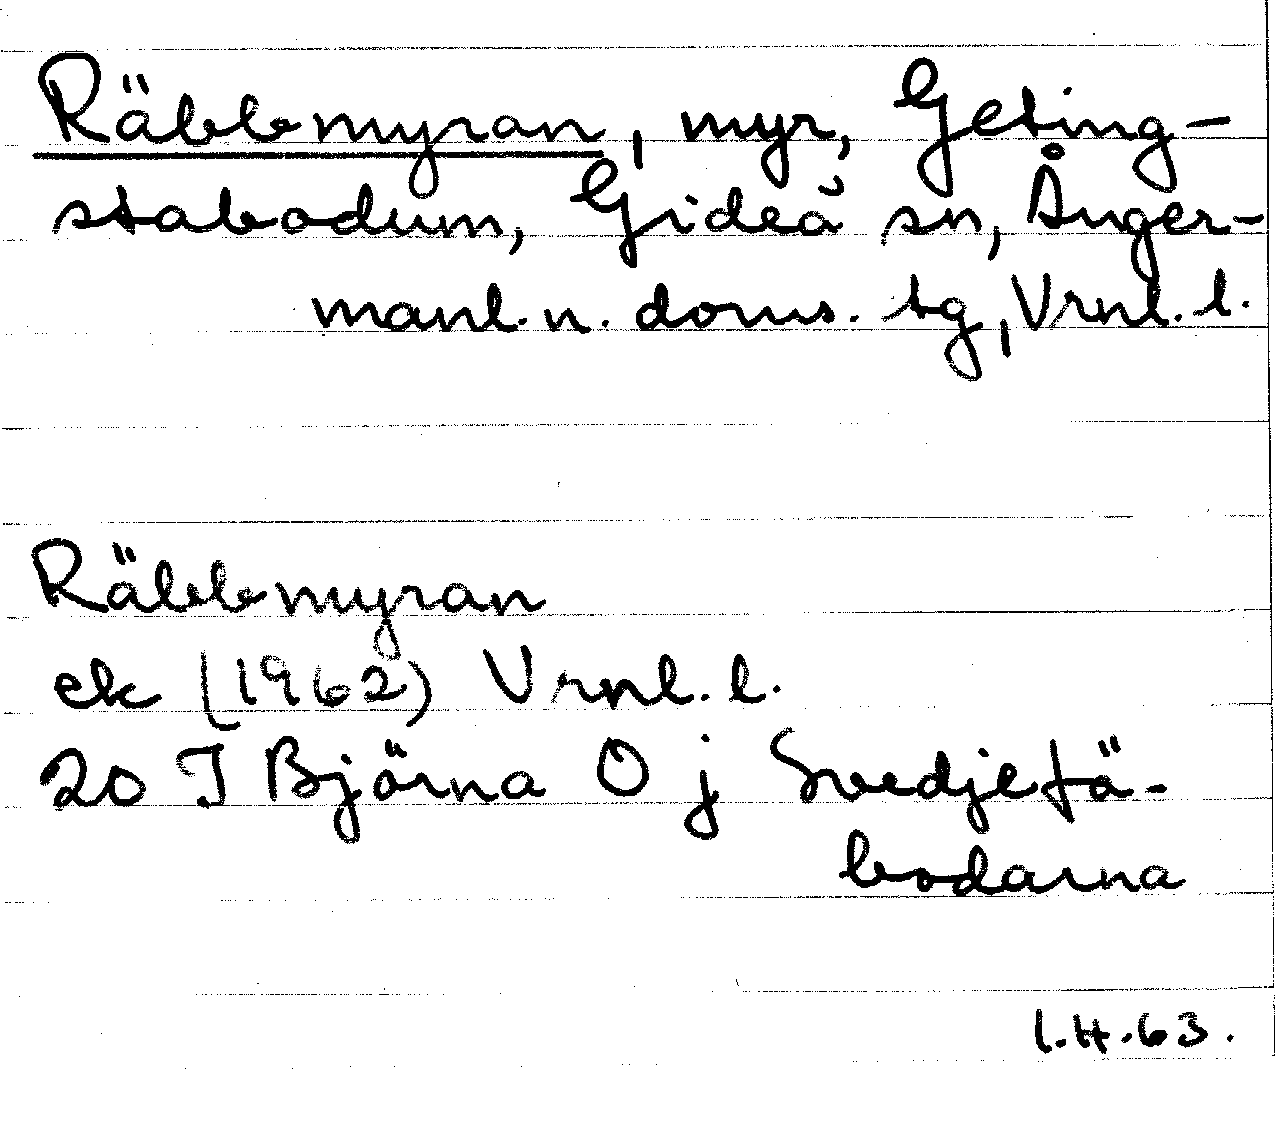 Räbbmyran, myr, Geting-
stabodum, Gideå sn, Ånger-
manl. n. doms. tg, Vrnl. l.
Räbbmyran
ek (1962) Vrnl. l.
20 I Björna O j Svedjefä-
bodarna
1.4.63.